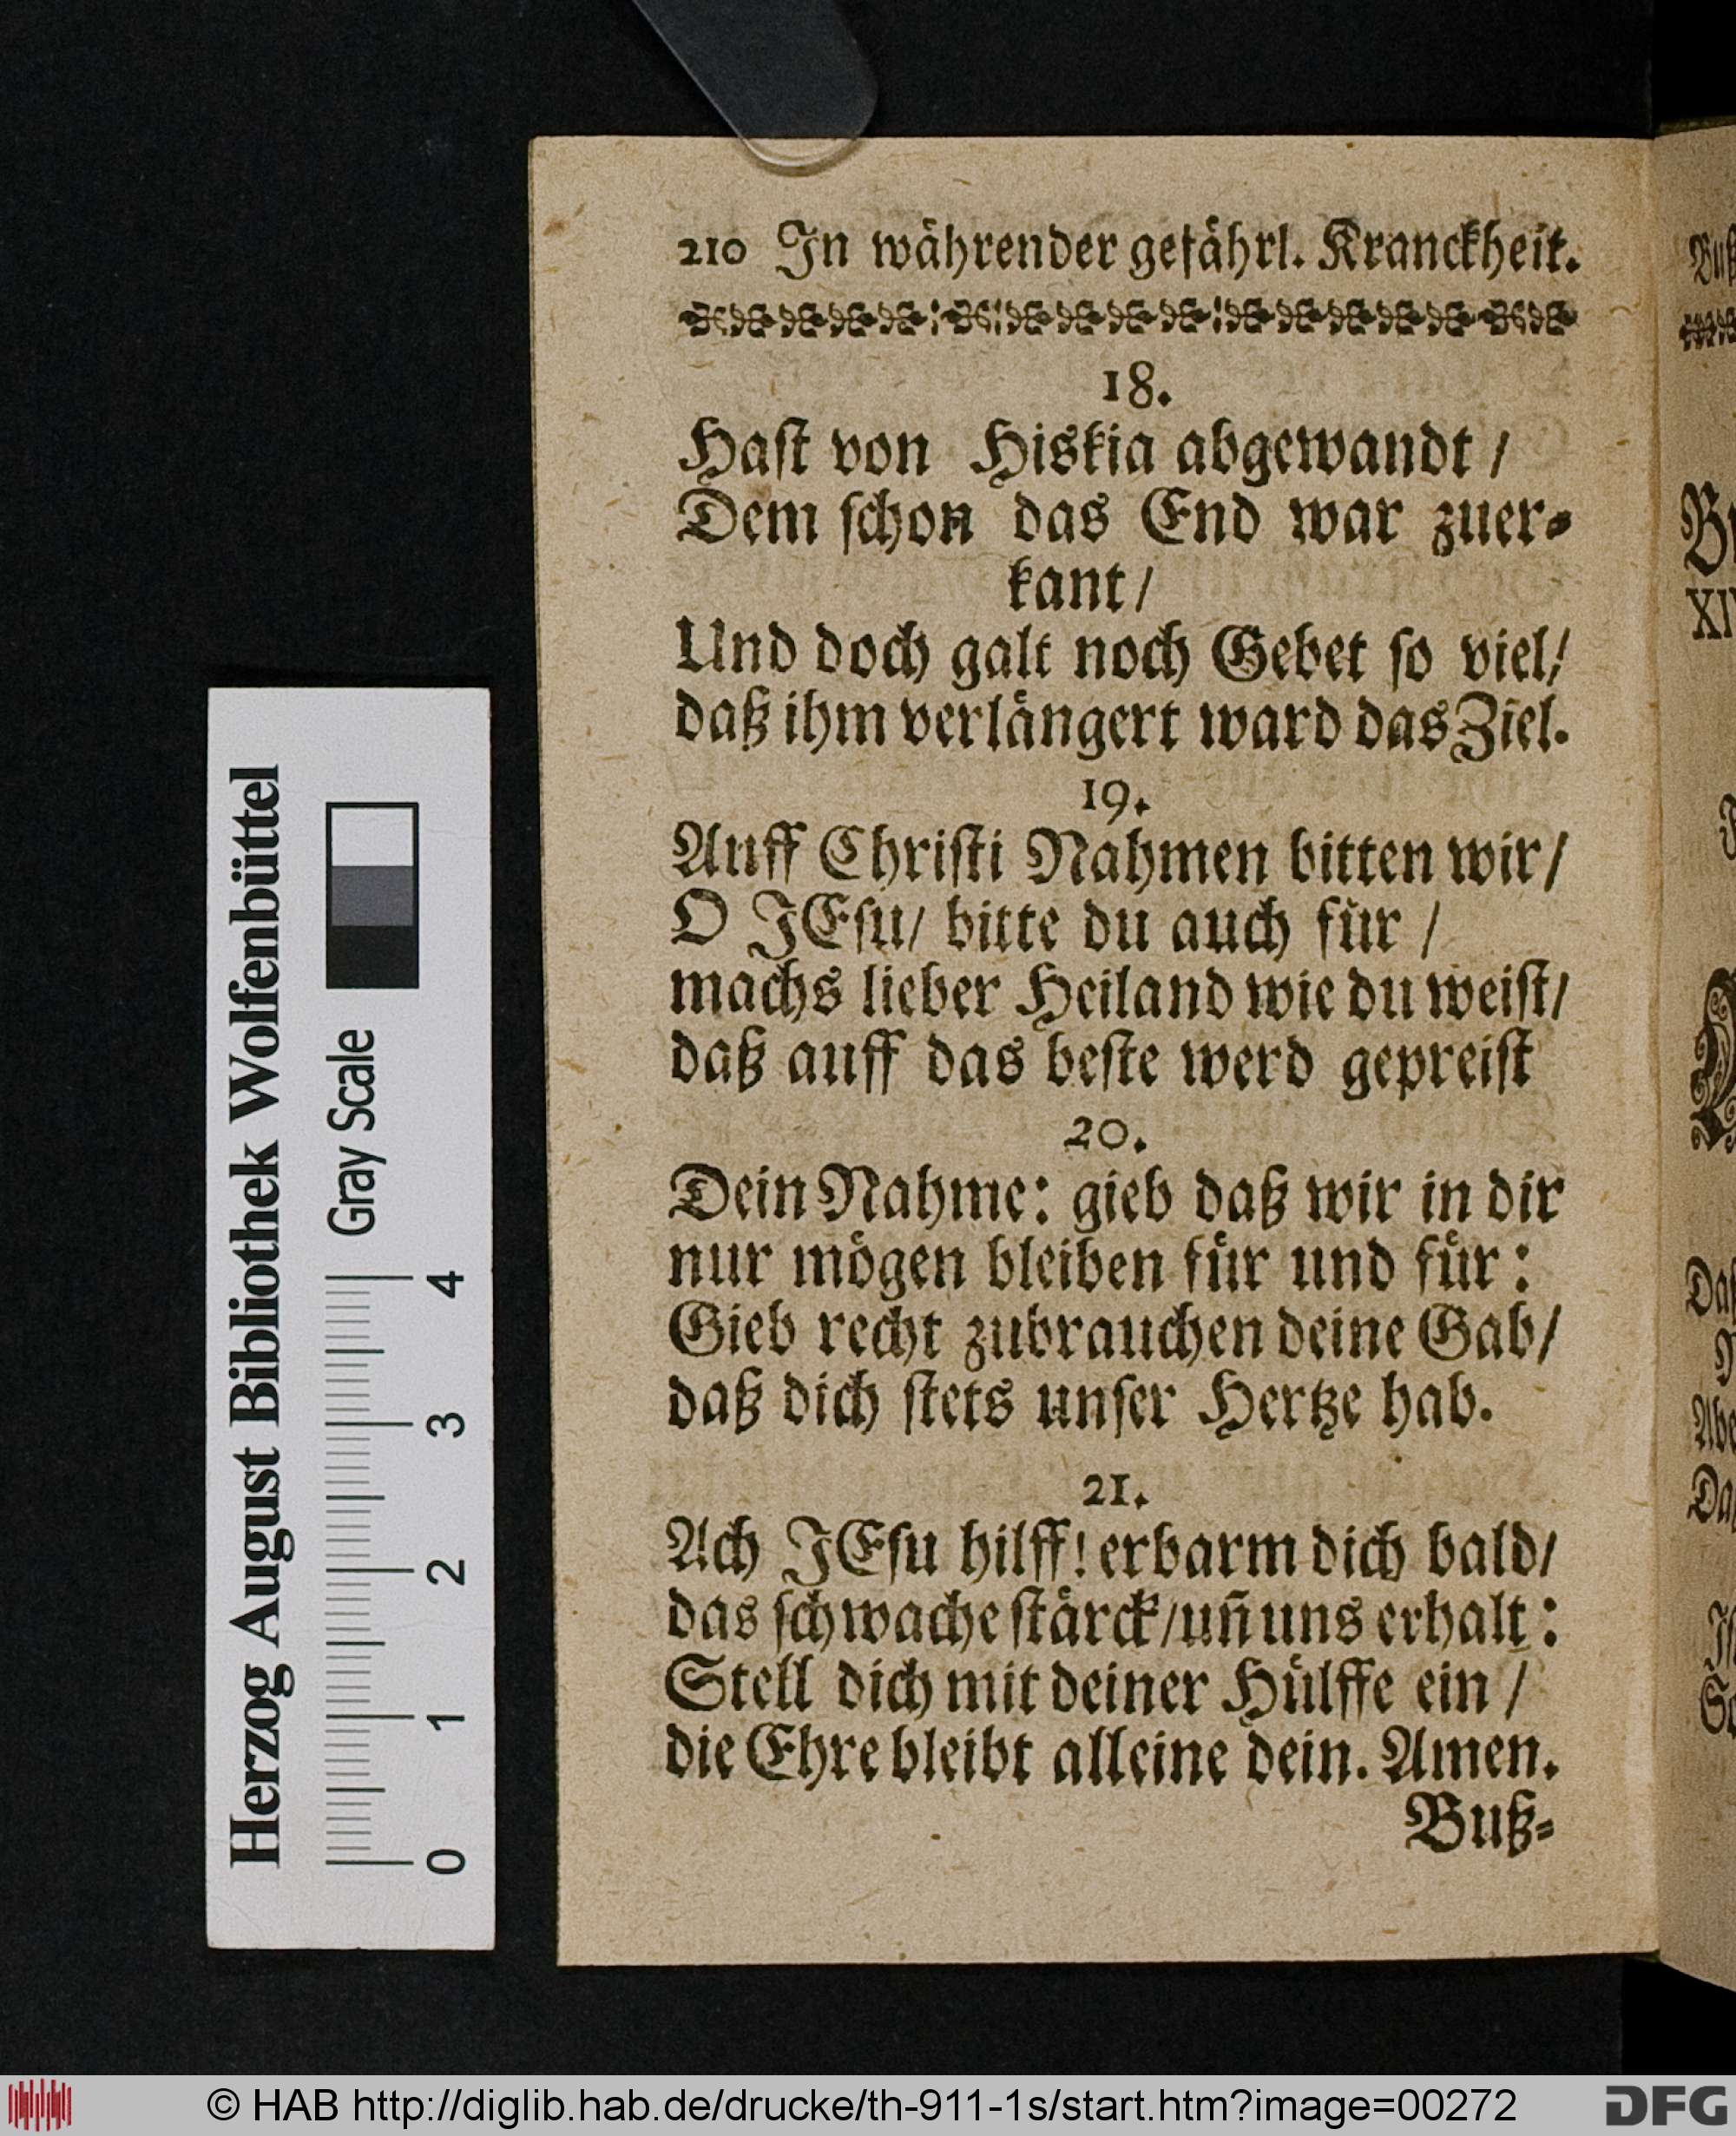 210 In währender gefährl. Kranckheit.
18.
Hast von Hiskia abgewandt /
Dem schon das End war zuer-
kant /
Und doch galt noch Gebet so viel /
daß ihm verlängert ward das Ziel.
19.
Auff Christi Nahmen bitten wir /
O JEsu / bitte du auch für /
machs lieber Heiland wie du weist /
daß auff das beste werd gepreist
20.
Dein Nahme: gieb daß wir in dir
nur mögen bleiben für und für:
Gieb recht zubrauchen deine Gab /
daß dich stets unser Hertze hab.
21.
Ach JEsu hilff! erbarm dich bald /
das schwache stärck / uñ uns erhalt:
Stell dich mit deiner Hülffe ein /
die Ehre bleibt alleine dein. Amen.
Buß-
Herzog August Bibliothek Wolfenbüttel
Gray Scale
0 1 2 3 4
XI
© HAB http://diglib.hab.de/drucke/th-911-1s/start.htm?image=00272
DFG